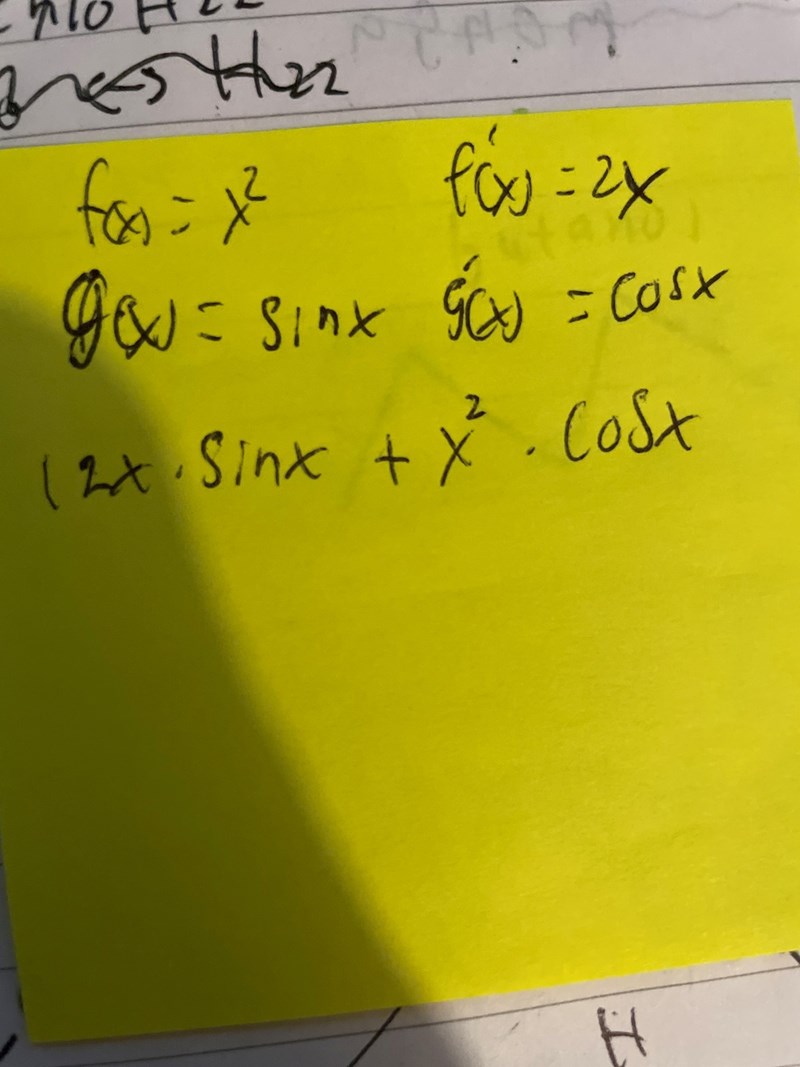 H22
f(x) = x² f'(x) = 2x
g(x) = sinx g'(x) = cosx
(2x · sinx + x² · cosx
H